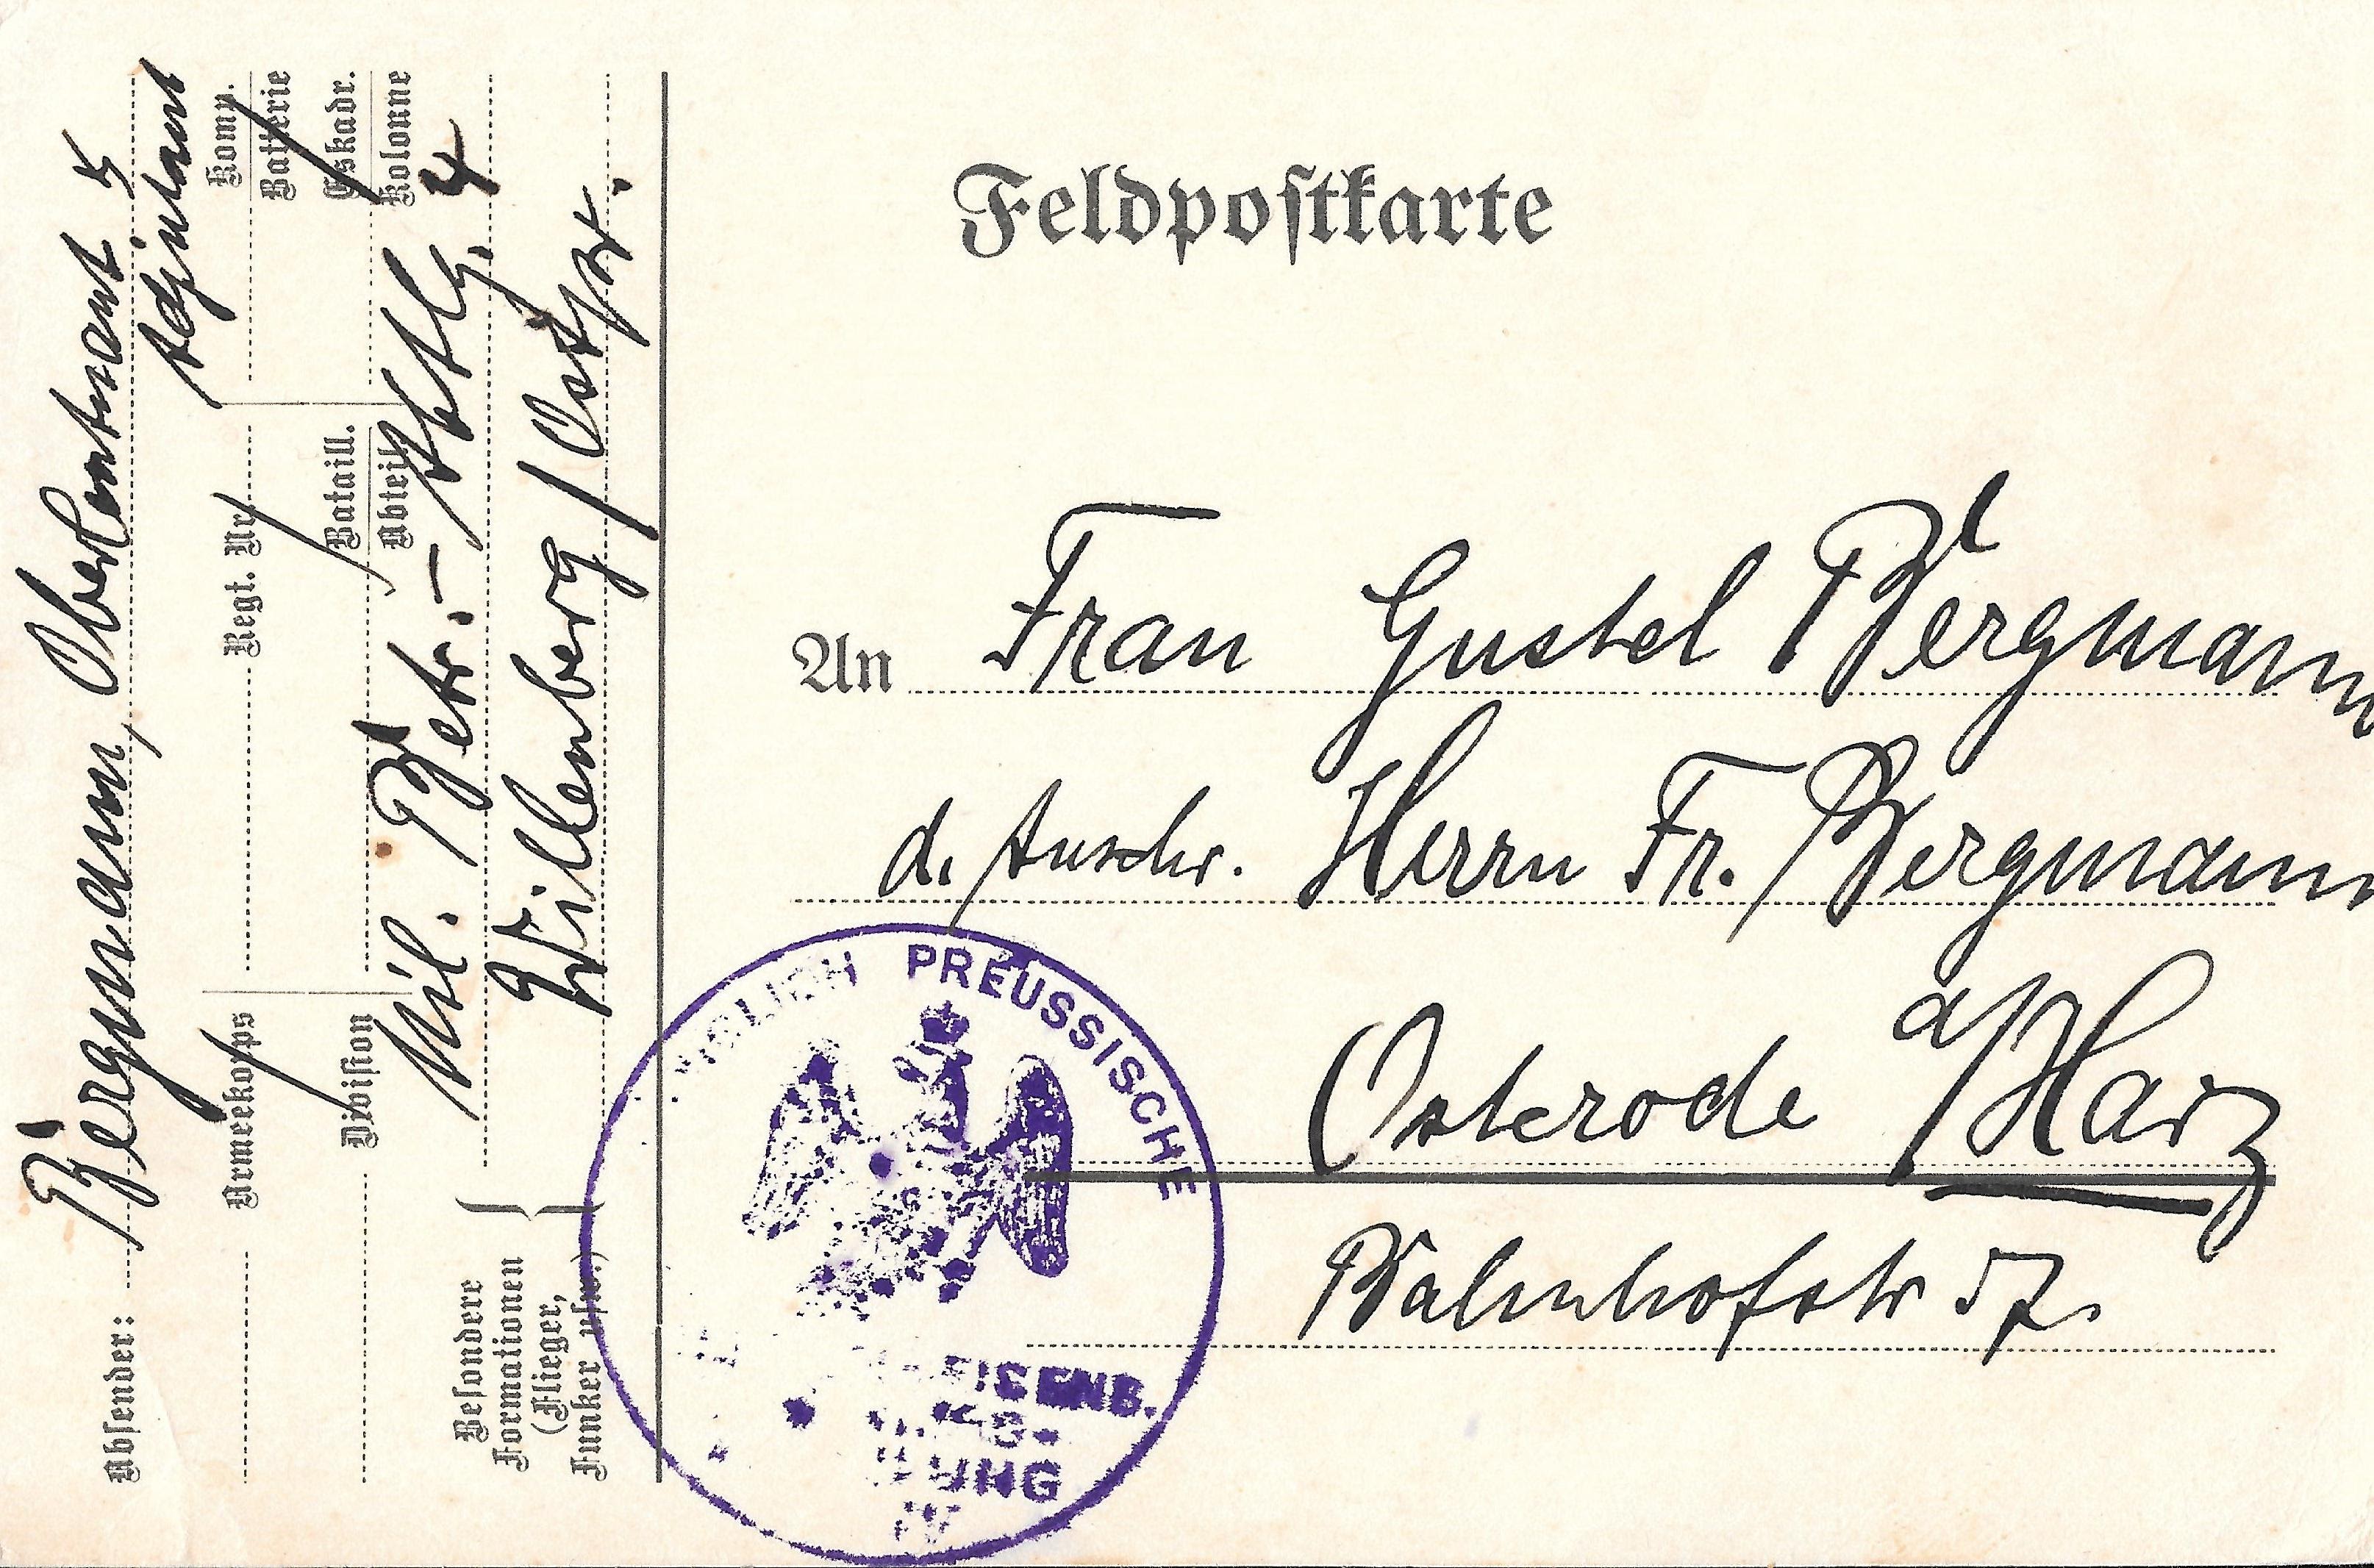 Feldpostkarte
An Frau Gustel Bergmann
d. Anschr. Herrn Fr. Bergmann
Osterode a/Harz
Bahnhofstr 57.
Absender: Bergmann, Oberleutnant
Adjutant
Armeekorps Regt. Nr. Komp.
Batterie
Division Bataill. Eskadr.
Abteil. Kolonne
Mil. Betr.-Abtlg. 4
Willenberg / Ostpr.
Besondere
Formationen
(Flieger,
Funker usw.)
PREUSSISCHE
EISENB.